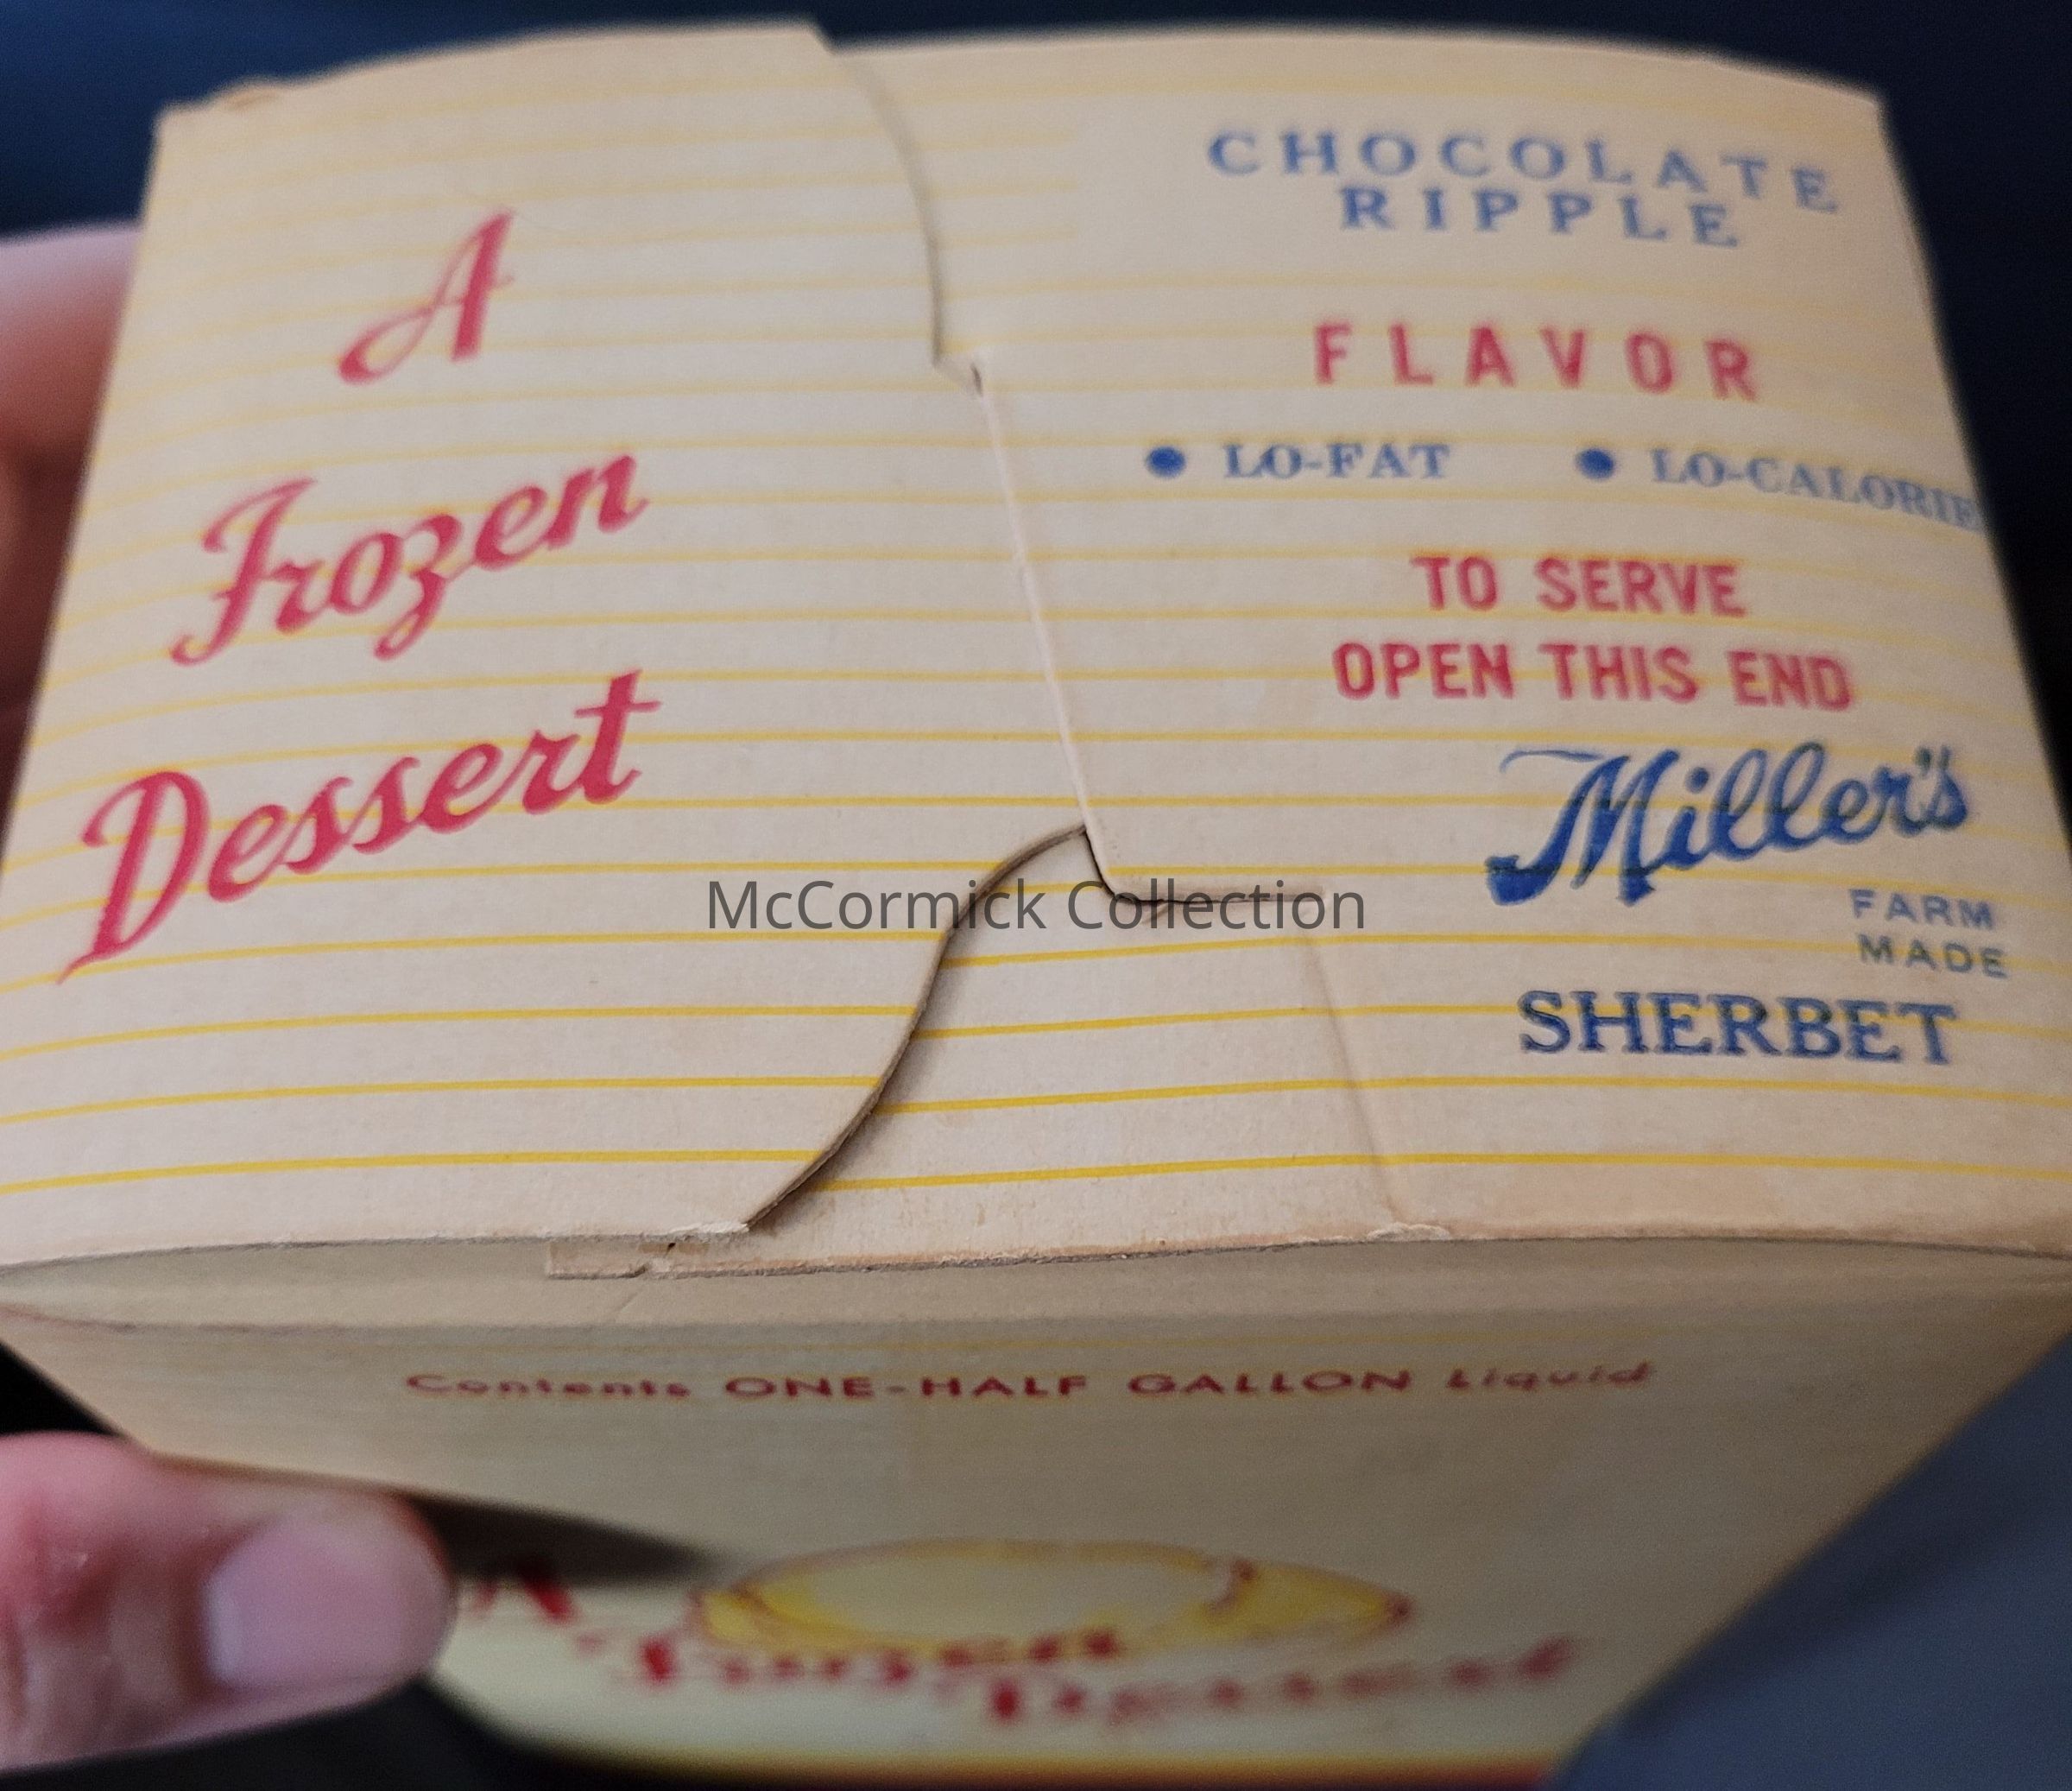 A
Frozen
Dessert
CHOCOLATE
RIPPLE
FLAVOR
• LO-FAT • LO-CALORIE
TO SERVE
OPEN THIS END
Miller's
FARM
MADE
SHERBET
McCormick Collection
Contents ONE-HALF GALLON Liquid
A
Frozen
Dessert